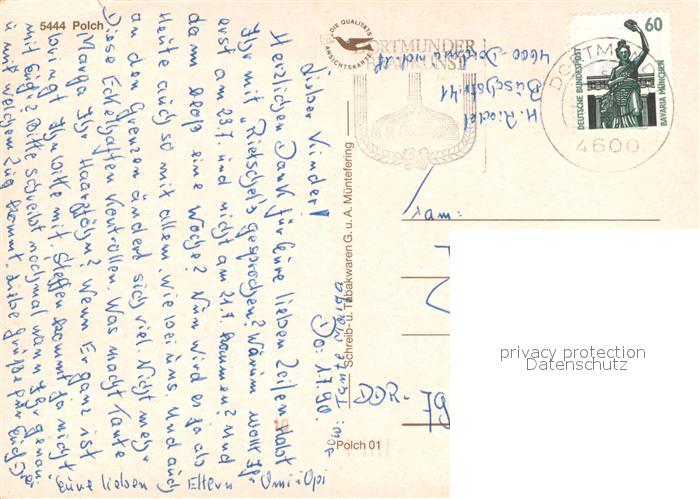 5444 Polch
DIE QUALITÄTS
ANSICHTSKARTE
DORTMUNDER
4600
DORTMUND
60
DEUTSCHE BUNDESPOST
BAVARIA MÜNCHEN
H. Riedel
Büschstr. 41
4600 Dortmund
Schreib- u. Tabakwaren G. u. A. Müntefering
Polch 01
DDR-
privacy protection
Datenschutz
Do: 1.7.90.
Lieber Kinder!
Herzlichen Dank für Eure lieben Zeilen. Habt
Ihr mit „Rietschels gesprochen? Warum wollt Ihr
erst am 23.7. und nicht am 21.7. kommen? Und
dann bloß eine Woche? Nun wird es ja ab
Heute auch so mit allem, wie bei uns. Und auch
an den Grenzen ändert sich viel. Nicht mehr
Diese Ekelhaften Kontrollen. Was macht Tante
Marga Ihr? Wenn Er ganz ist
bringt Ihn bitte mit. Steffen kommt ja nicht
mit Euch? Bitte schreibt nochmal wann Ihr genau
u. mit welchem Zug kommt. Liebe Grüße für Euch Drei
Eure lieben Eltern Omi: Opi